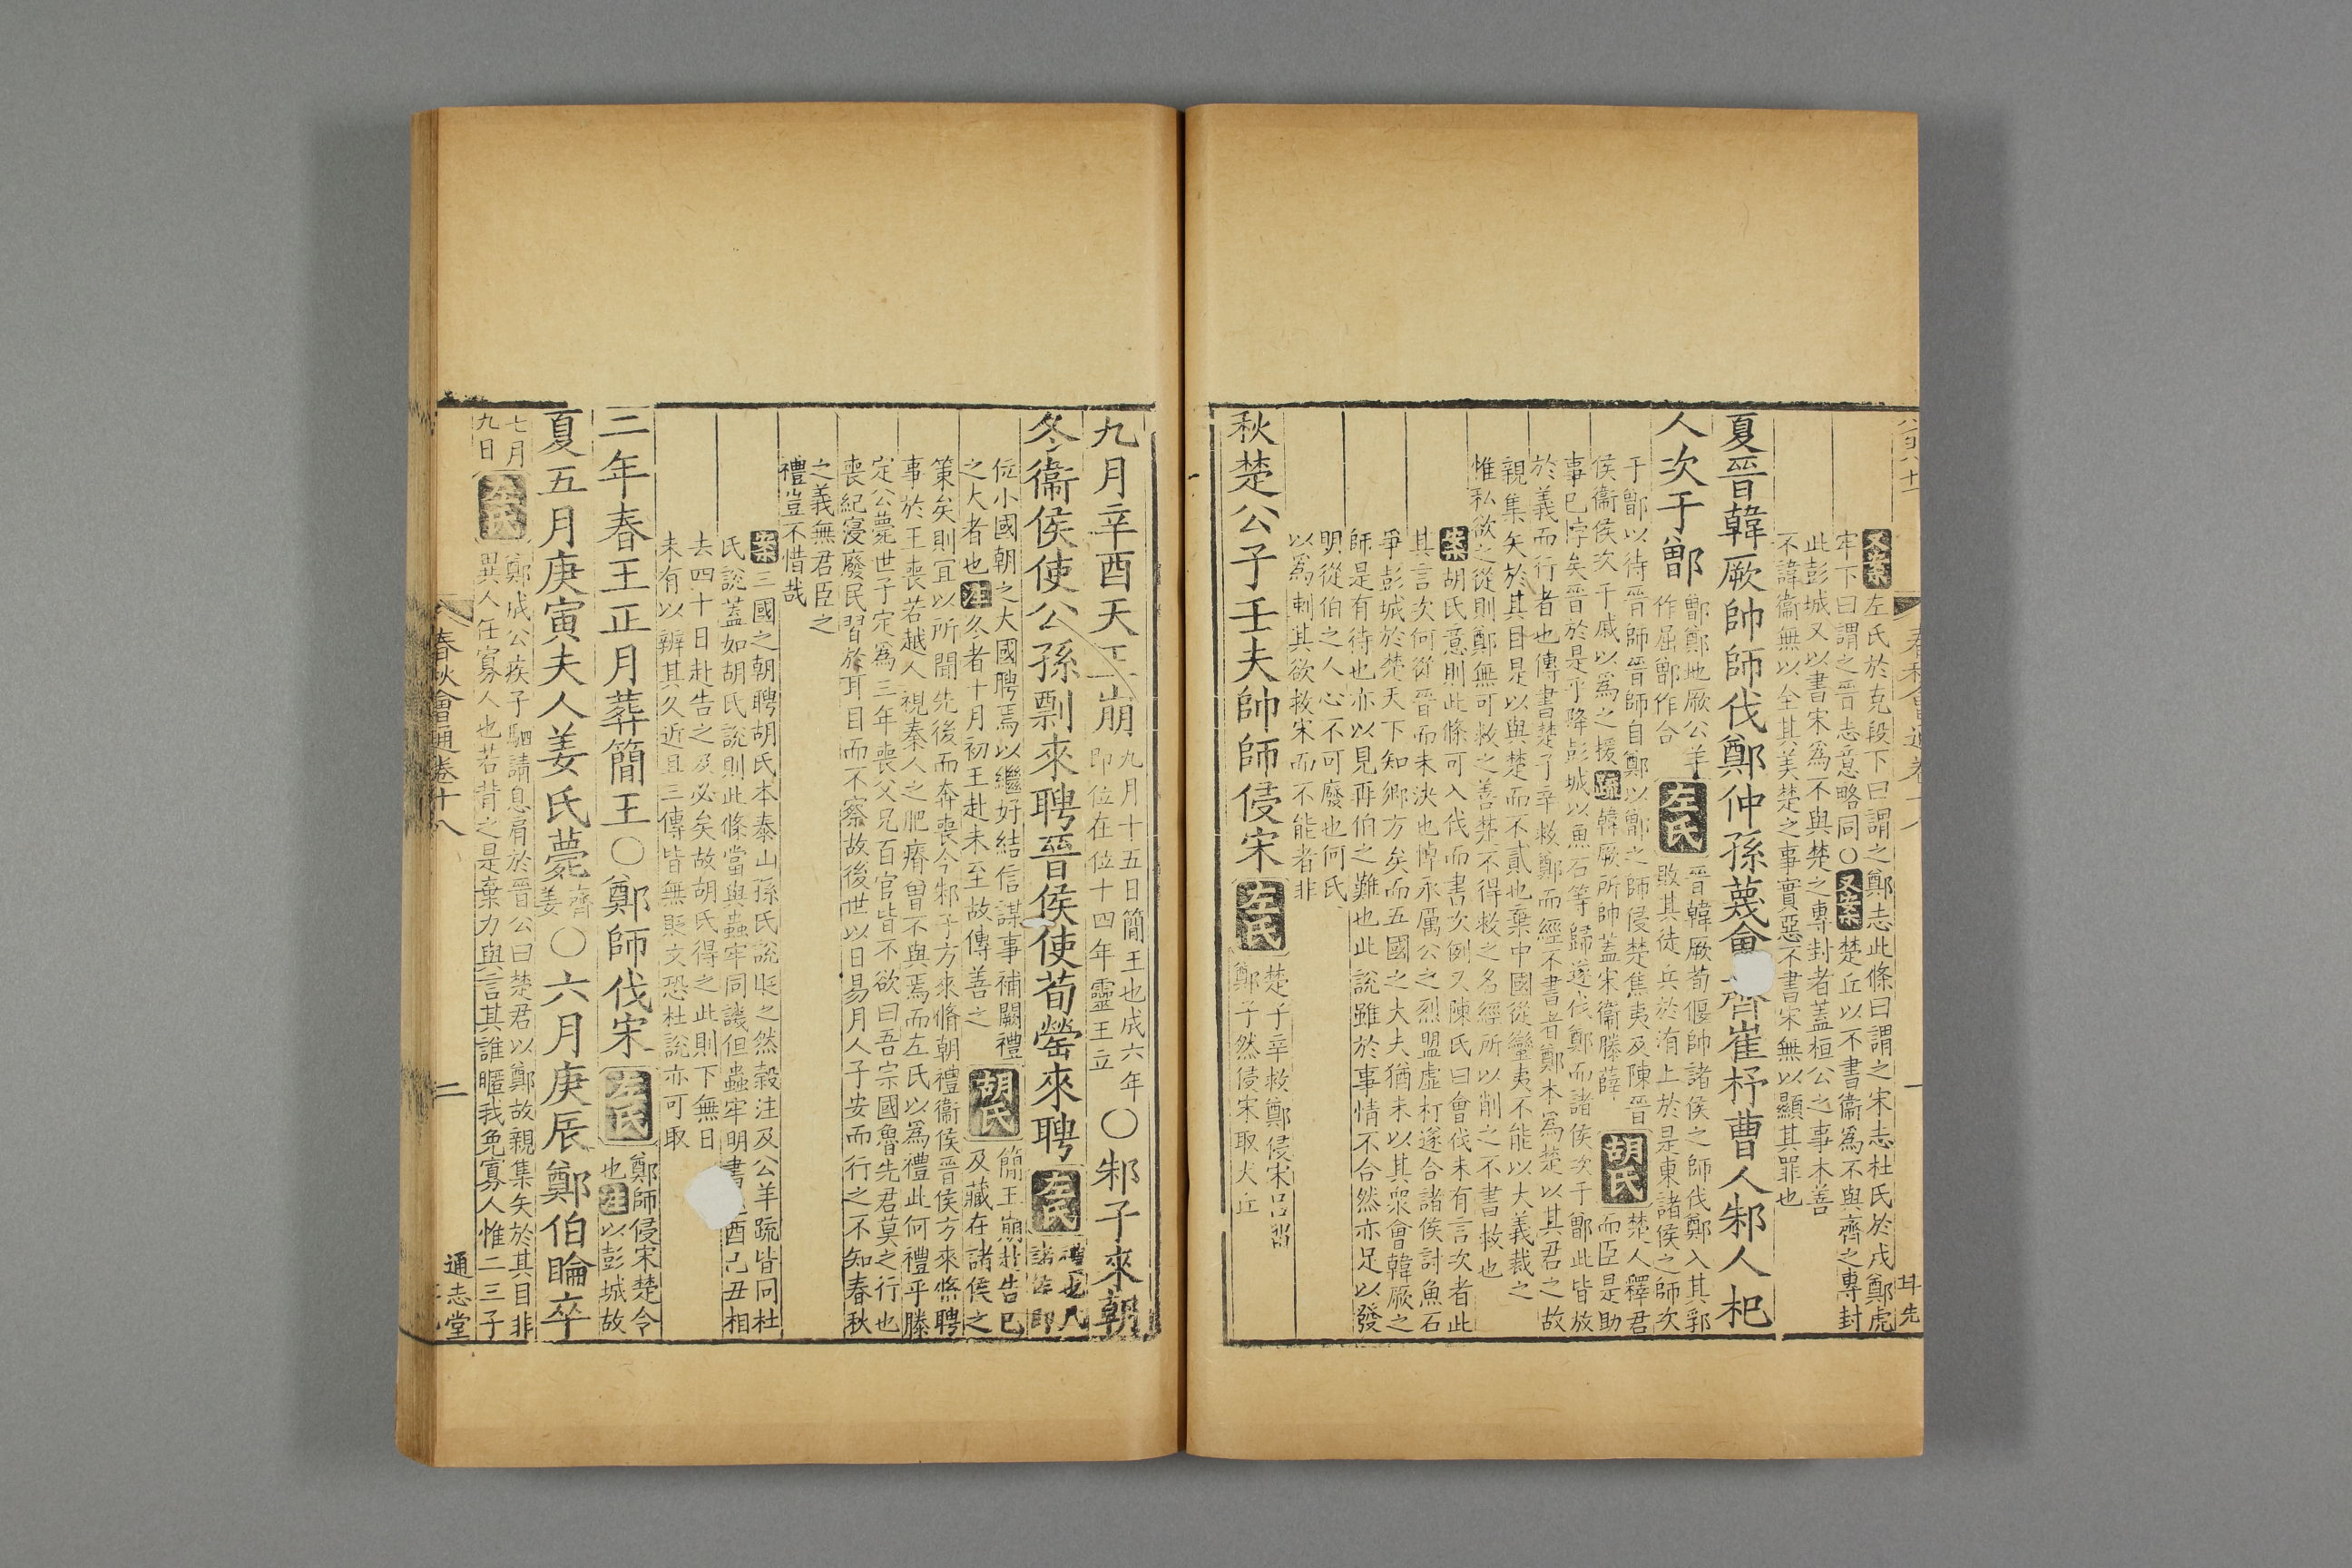 又案左氏於克段下曰謂之鄭志此條曰謂之宋志杜氏於戌鄭虎
牢下曰謂之晉志意略同○又案楚丘以不書衞為不與齊之專封
此彭城又以書宋為不與楚之專封者蓋桓公之事本善
不諱衞無以全其美楚之事實惡不書宋無以顯其罪也
夏晉韓厥帥師伐鄭仲孫蔑會齊崔杼曹人邾人杞
人次于鄫
鄫鄭地厥公羊
作屈鄫作合
左氏
晉韓厥荀偃帥諸侯之師伐鄭入其郛
敗其徒兵於洧上於是東諸侯之師次
于鄫以待晉師晉師自鄭以鄫之師侵楚焦夷及陳晉
侯衞侯次于戚以為之援疏韓厥所帥蓋宋衞滕薛
胡氏
楚人釋君
而臣是助
事已悖矣晉於是乎降彭城以魚石等歸遂伐鄭而諸侯次于鄫此皆放
於義而行者也傳書楚子辛救鄭而經不書者鄭本為楚以其君之故
親集矢於其目是以與楚而不貳也棄中國從蠻夷不能以大義裁之
惟私欲之從則鄭無可救之善楚不得救之名經所以削之不書救也
案胡氏意則此條可入伐而書次例又陳氏曰會伐未有言次者此
其言次何從晉而未決也悼承厲公之烈盟虛朾遂合諸侯討魚石
爭彭城於楚天下知鄉方矣而五國之大夫猶未以其衆會韓厥之
師是有待也亦以見再伯之難也此說雖於事情不合然亦足以發
明從伯之人心不可廢也何氏
以為刺其欲救宋而不能者非
秋楚公子壬夫帥師侵宋
左氏
楚子辛救鄭侵宋呂留
鄭子然侵宋取犬丘
九月辛酉天王崩
九月十五日簡王也成六年
即位在位十四年靈王立
○邾子來朝
冬衞侯使公孫剽來聘晉侯使荀罃來聘
左氏
禮也凡
諸侯即
位小國朝之大國聘焉以繼好結信謀事補闕禮
之大者也注冬者十月初王赴未至故傳善之
胡氏
簡王崩赴告已
及藏在諸侯之
策矣則宜以所聞先後而奔喪今邾子方來脩朝禮衞侯晉侯方來脩聘
事於王喪若越人視秦人之肥瘠曾不與焉而左氏以為禮此何禮乎滕
定公薨世子定為三年喪父兄百官皆不欲曰吾宗國魯先君莫之行也
喪紀寖廢民習於耳目而不察故後世以日易月人子安而行之不知春秋
之義無君臣之
禮豈不惜哉
案三國之朝聘胡氏本泰山孫氏說臣之然穀注及公羊疏皆同杜
氏說蓋如胡氏說則此條當與蟲牢同譏但蟲牢明書酉己丑相
去四十日赴告之及必矣故胡氏得之此則下無日
未有以辨其久近且三傳皆無貶文恐杜說亦可取
二年春王正月葬簡王○鄭師伐宋
左氏
鄭師侵宋楚令
也注以彭城故
夏五月庚寅夫人姜氏薨
齊
姜
○六月庚辰鄭伯睔卒
七月
九日
左氏
鄭成公疾子駟請息肩於晉公曰楚君以鄭故親集矢於其目非
異人任寡人也若背之是棄力與言其誰暱我免寡人惟二三子
春秋會通卷十八
二
通志堂